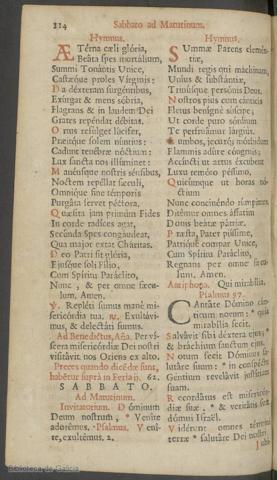 214 Sabbato ad Matutinum.
Hymnus.
ÆTérna cæli glória,
Beáta spes mortálium,
Summi Tonántis Unice,
Castæque proles Vírginis:
Da déxteram surgéntibus,
Exúrgat & mens sóbria,
Flagrans & in laudem Dei
Grates repéndat débitas.
Ortus refúlget lúcifer,
Præítque solem núntius:
Cadunt tenébræ nóctium:
Lux sancta nos illúminet:
Manénsque nostris sénsibus,
Noctem repéllat sæculi,
Omníque fine témporis
Purgáta servet péctora.
Quæsíta jam primùm Fides
In corde radíces agat,
Secúnda Spes congáudeat,
Qua major extat Cháritas.
Deo Patri sit glória,
Ejúsque soli Fílio,
Cum Spíritu Paráclito,
Nunc, & per omne sæcu-
lum. Amen.
℣. Repléti sumus manè mi-
sericórdia tua. ℟. Exultávi-
mus, & delectáti sumus.
Ad Benedictus, Aña. Per ví-
scera misericórdiæ Dei nostri
visitávit nos Oriens ex alto.
Preces quando dicéndæ sunt,
habétur suprà in Feria ij. 62.
SABBATO.
Ad Matutinum.
Invitatorium. Dóminum
Deum nostrum, * Veníte
adorémus. Psalmus. Vení-
te, exultémus. 2.
Hymnus.
SUmmæ Parens clemén-
tiæ,
Mundi regis qui máchinam,
Uníus & substántiæ,
Trinúsque persónis Deus.
Nostros pius cum cánticis
Fletus benígne súscipe;
Ut corde puro sórdium
Te perfruámur lárgiùs.
Lumbos, jecúrque mórbidum
Flammis adúre cóngruis;
Accíncti ut artus éxcubent
Luxu remóto péssimo.
Quicúmque ut horas nó-
ctium
Nunc concinéndo rúmpimus,
Ditémur omnes áffatim
Donis beátæ pátriæ.
Præsta, Pater piíssime,
Patríque compar Unice,
Cum Spíritu Paráclito,
Regnans per omne sæcu-
lum. Amen.
Antiphona. Qui mirabília.
Psalmus 97.
CAntáte Dómino cán-
ticum novum: * quia
mirabília fecit.
Salvávit sibi déxtera ejus: *
& bráchium sanctum ejus.
Notum fecit Dóminus sa-
lutáre suum: * in conspéctu
Géntium revelávit justítiam
suam.
Recordátus est misericór-
diæ suæ, * & veritátis suæ
dómui Israël.
Vidérunt omnes términi
terræ * salutáre Dei nostri.
Biblioteca de Galicia